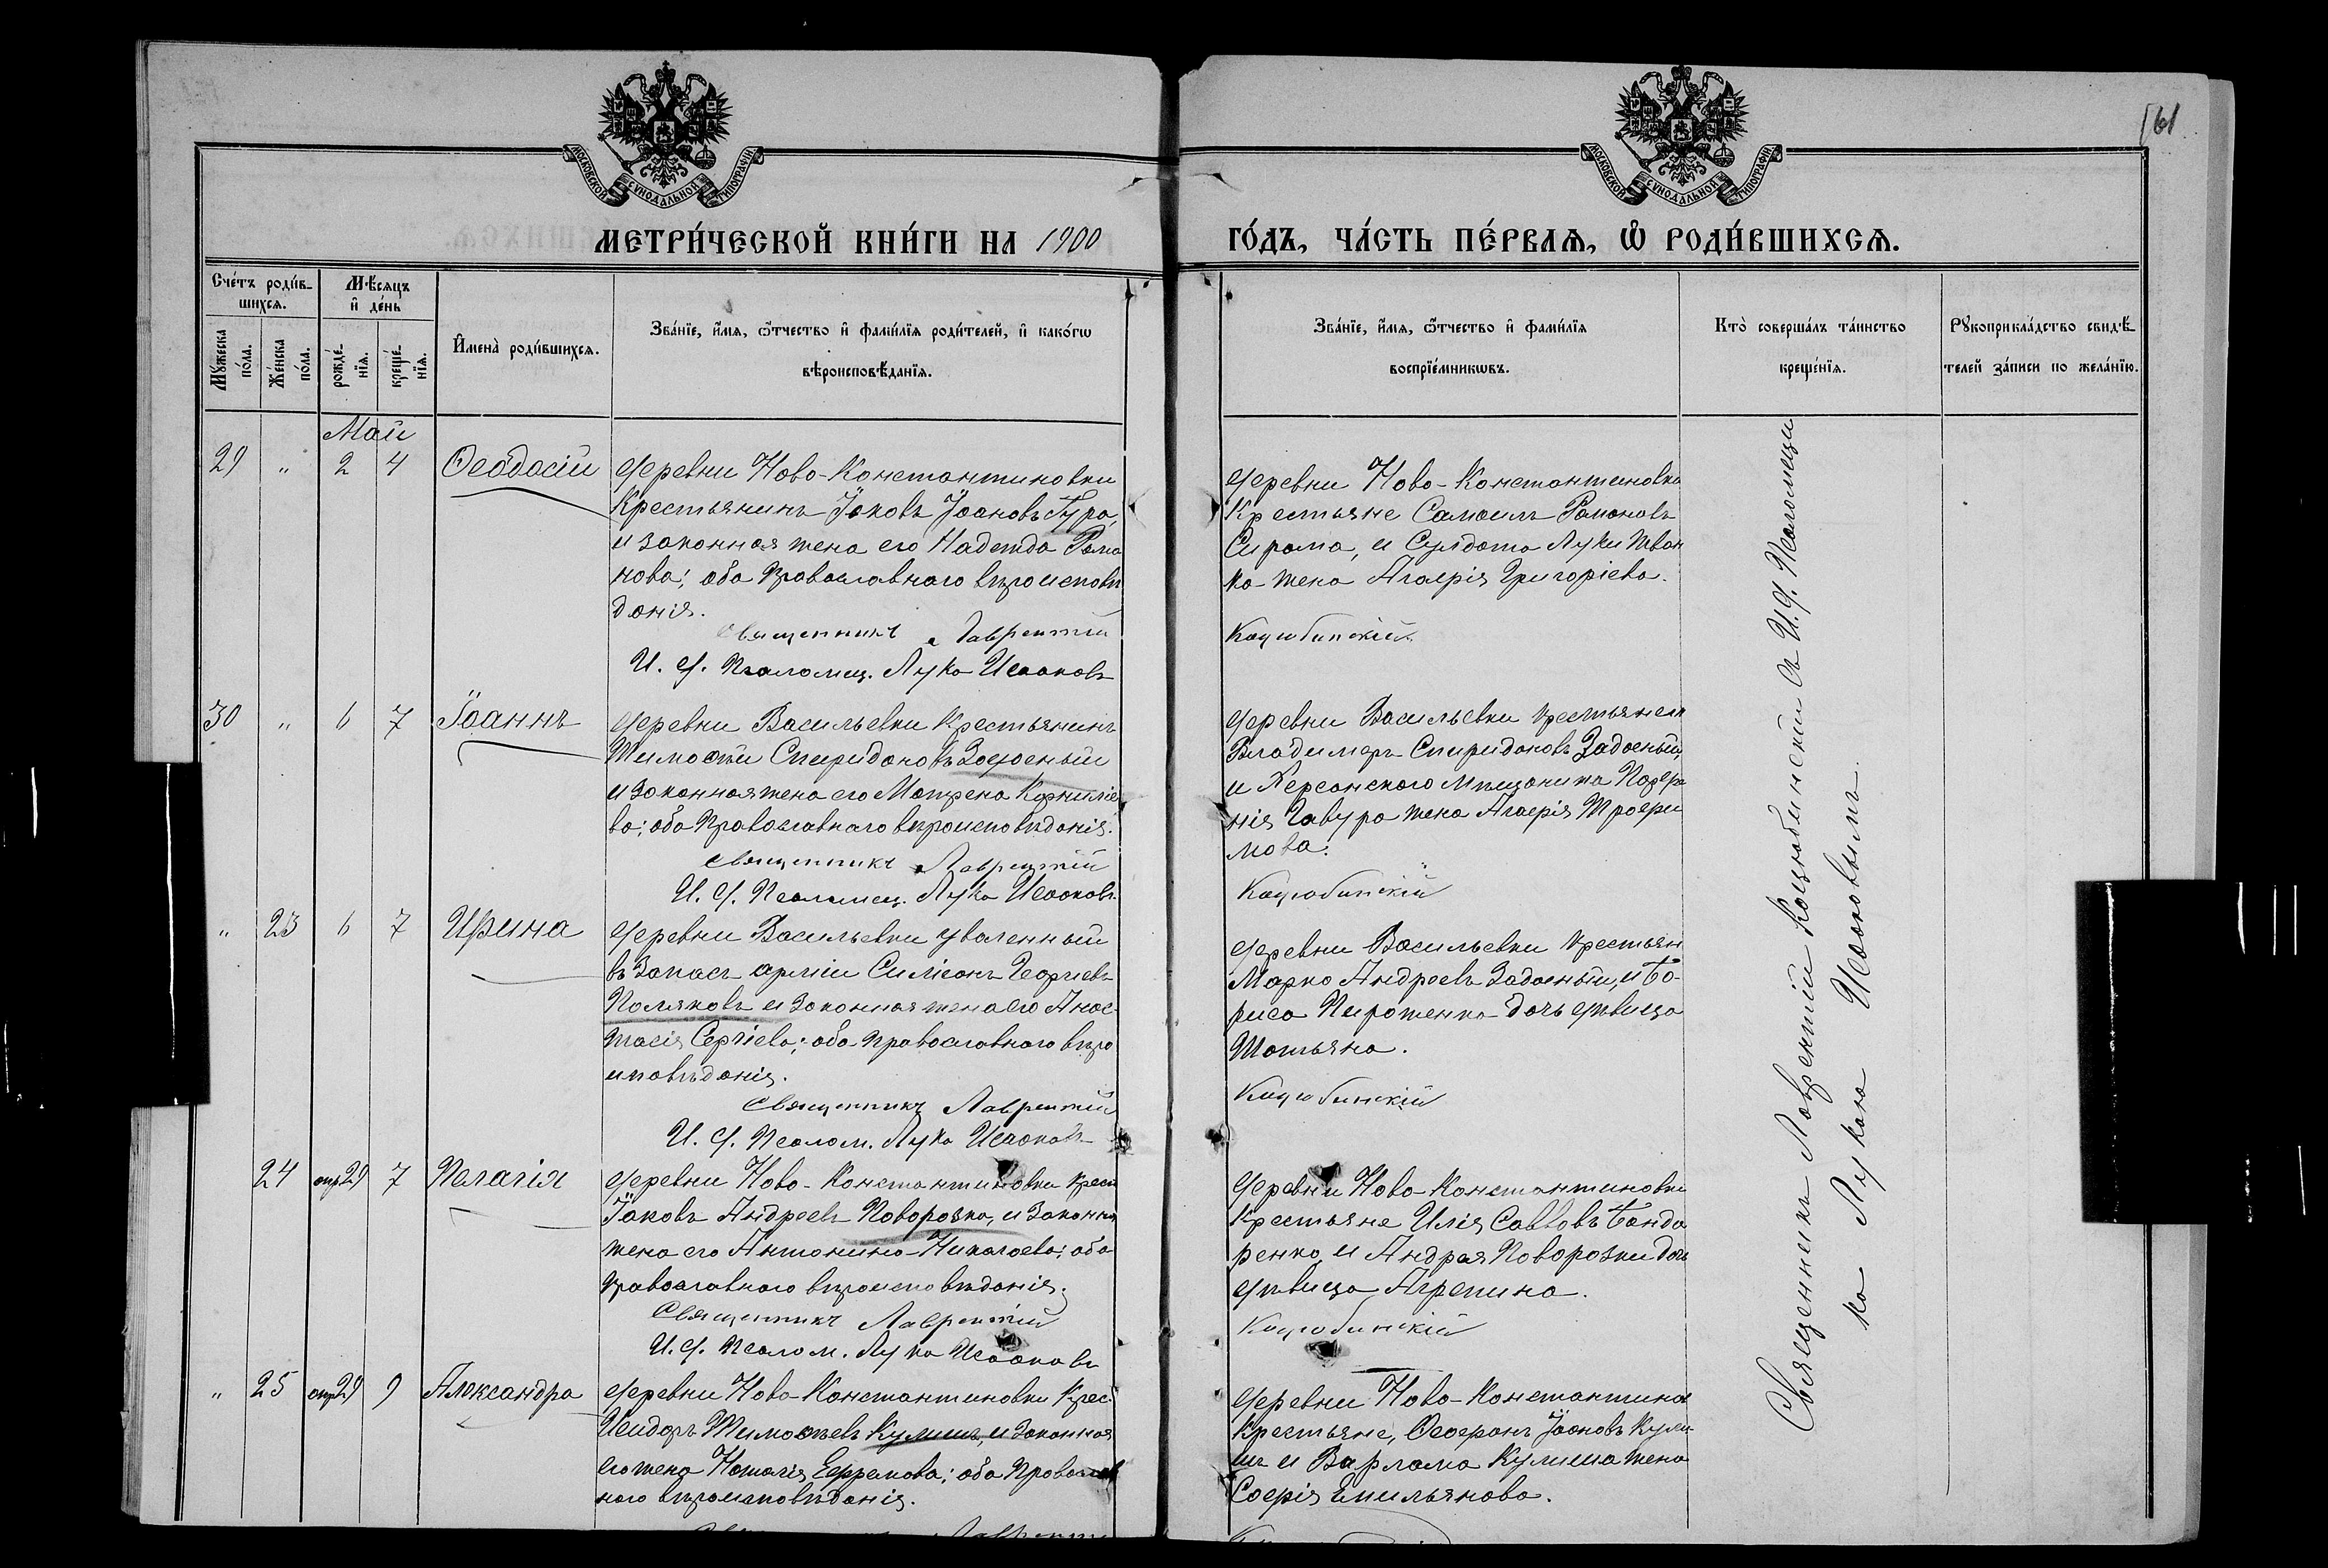 161
МОСКОВСКОЙ СѴНОДАЛЬНОЙ ТИПОГРАФІИ
МОСКОВСКОЙ СѴНОДАЛЬНОЙ ТИПОГРАФІИ
МЕТРИ́ЧЕСКОЙ КНИ́ГИ НА 1900
ГО́ДЪ, ЧА́СТЬ ПЕ́РВАѦ, Ѽ РОДИ́ВШИХСѦ.
Сче́тъ роди́в-
шихсѧ.
Мꙋ́жеска
по́ла.
Же́нска
по́ла.
Мѣ́сяцъ
и҆ де́нь
рожде́-
нїѧ.
креще́-
нїѧ.
И҆мена̀ роди́вшихсѧ.
Зва́нїе, и҆́мѧ, ѻ҆́тчество и҆ фами́лїѧ роди́телей, и҆ како́гѡ
вѣроисповѣ́данїѧ.
Зва́нїе, и҆́мѧ, ѻ҆́тчество и҆ фами́лїѧ
воспрїе́мникѡвъ.
Кто̀ соверша́лъ та́инство
креще́нїѧ.
Рꙋкоприкла́дство свидѣ́-
телей за́писи по жела́нїю.
Май
29 " 2 4 Ѳеодосій
деревни Ново-Константиновки
Крестьянинъ Іаковъ Іоановъ Гура,
и законная жена его Надежда Рома
нова; оба Православнаго вѣроисповѣ
данія.
Священникъ Лаврентій
И. д. Псаломщ. Лука Исааковъ
деревни Ново-Константиновки
Крестьяне Самоилъ Романовъ
Сирота, и Солдата Луки Иван
ка жена Агафія Григоріева.
Коцюбинскій
30 " 6 7 Іоаннъ
деревни Васильевки Крестьянинъ
Тимофей Спиридоновъ Задоеный
и законная жена его Матрена Корниліе
ва; оба Православнаго вѣроисповѣданія.
Священникъ Лаврентій
И. д. Псаломщ. Лука Исааковъ
деревни Васильевки крестьянинъ
Владимеръ Спиридоновъ Задоеный,
и Херсонского мѣщанина
Гавура жена Агафія Трофи
мова.
Коцюбинскій
" 23 6 7 Ирина
деревни Васильевки уволенный
въ Запасъ арміи Симеонъ Георгіевъ
Поляковъ и Законная жена его Анас
тасія Сергіева; оба православнаго вѣро
исповѣданія.
Священникъ Лаврентій
И. д. Псалом. Лука Исааковъ
деревни Васильевки крестьян
Марко Андреевъ Задоеный, и Бо-
риса Пироженко дочь дѣвица
Татьяна.
Коцюбинскій
24 апр 29 7 Пелагія
деревни Ново-Константиновки крест
Іаковъ Андреевъ Поворозко, и Законна
жена его Антонина Николаева; оба
православнаго вѣроисповѣданія.
Священникъ Лаврентій
И. д. Псалом. Лука Исааковъ
деревни Ново-Константиновки
Крестьяне Илія Савовъ Бонда
ренко, и Андрея Поворозки дочь
дѣвица Агрепина.
Коцюбинскій
" 25 апр 29 9 Александра
деревни Ново-Константиновки Крес.
Исидоръ Тимофеевъ Кулишъ, и Законная
его жена Наталія Ефремова; оба Православ
наго вѣроисповѣданія.
деревни Ново-Константинов
Крестьяне, Феофанъ Іоановъ Кули
шъ и Варлама Кулиша жена
Софія Емильянова.
Священникъ Лаврентій Коцюбинскій съ И. д. Псаломщи
ка Лукою Исааковымъ.